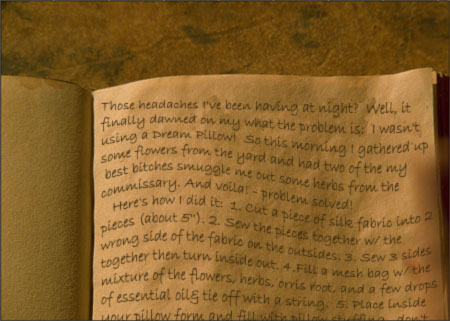 Those headaches I've been having at night? Well, it
finally dawned on my what the problem is: I wasn't
using a Dream Pillow! So this morning I gathered up
some flowers from the yard and had two of the my
best bitches smuggle me out some herbs from the
commissary. And voila! - problem solved!
Here's how I did it: 1. Cut a piece of silk fabric into 2
pieces (about 5"). 2. Sew the pieces together w/ the
wrong side of the fabric on the outsides. 3. Sew 3 sides
together then turn inside out. 4. Fill a mesh bag w/ the
mixture of the flowers, herbs, orris root, and a few drops
of essential oil & tie off with a string. 5. Place inside
your pillow form and fill with pillow stuffing - don't